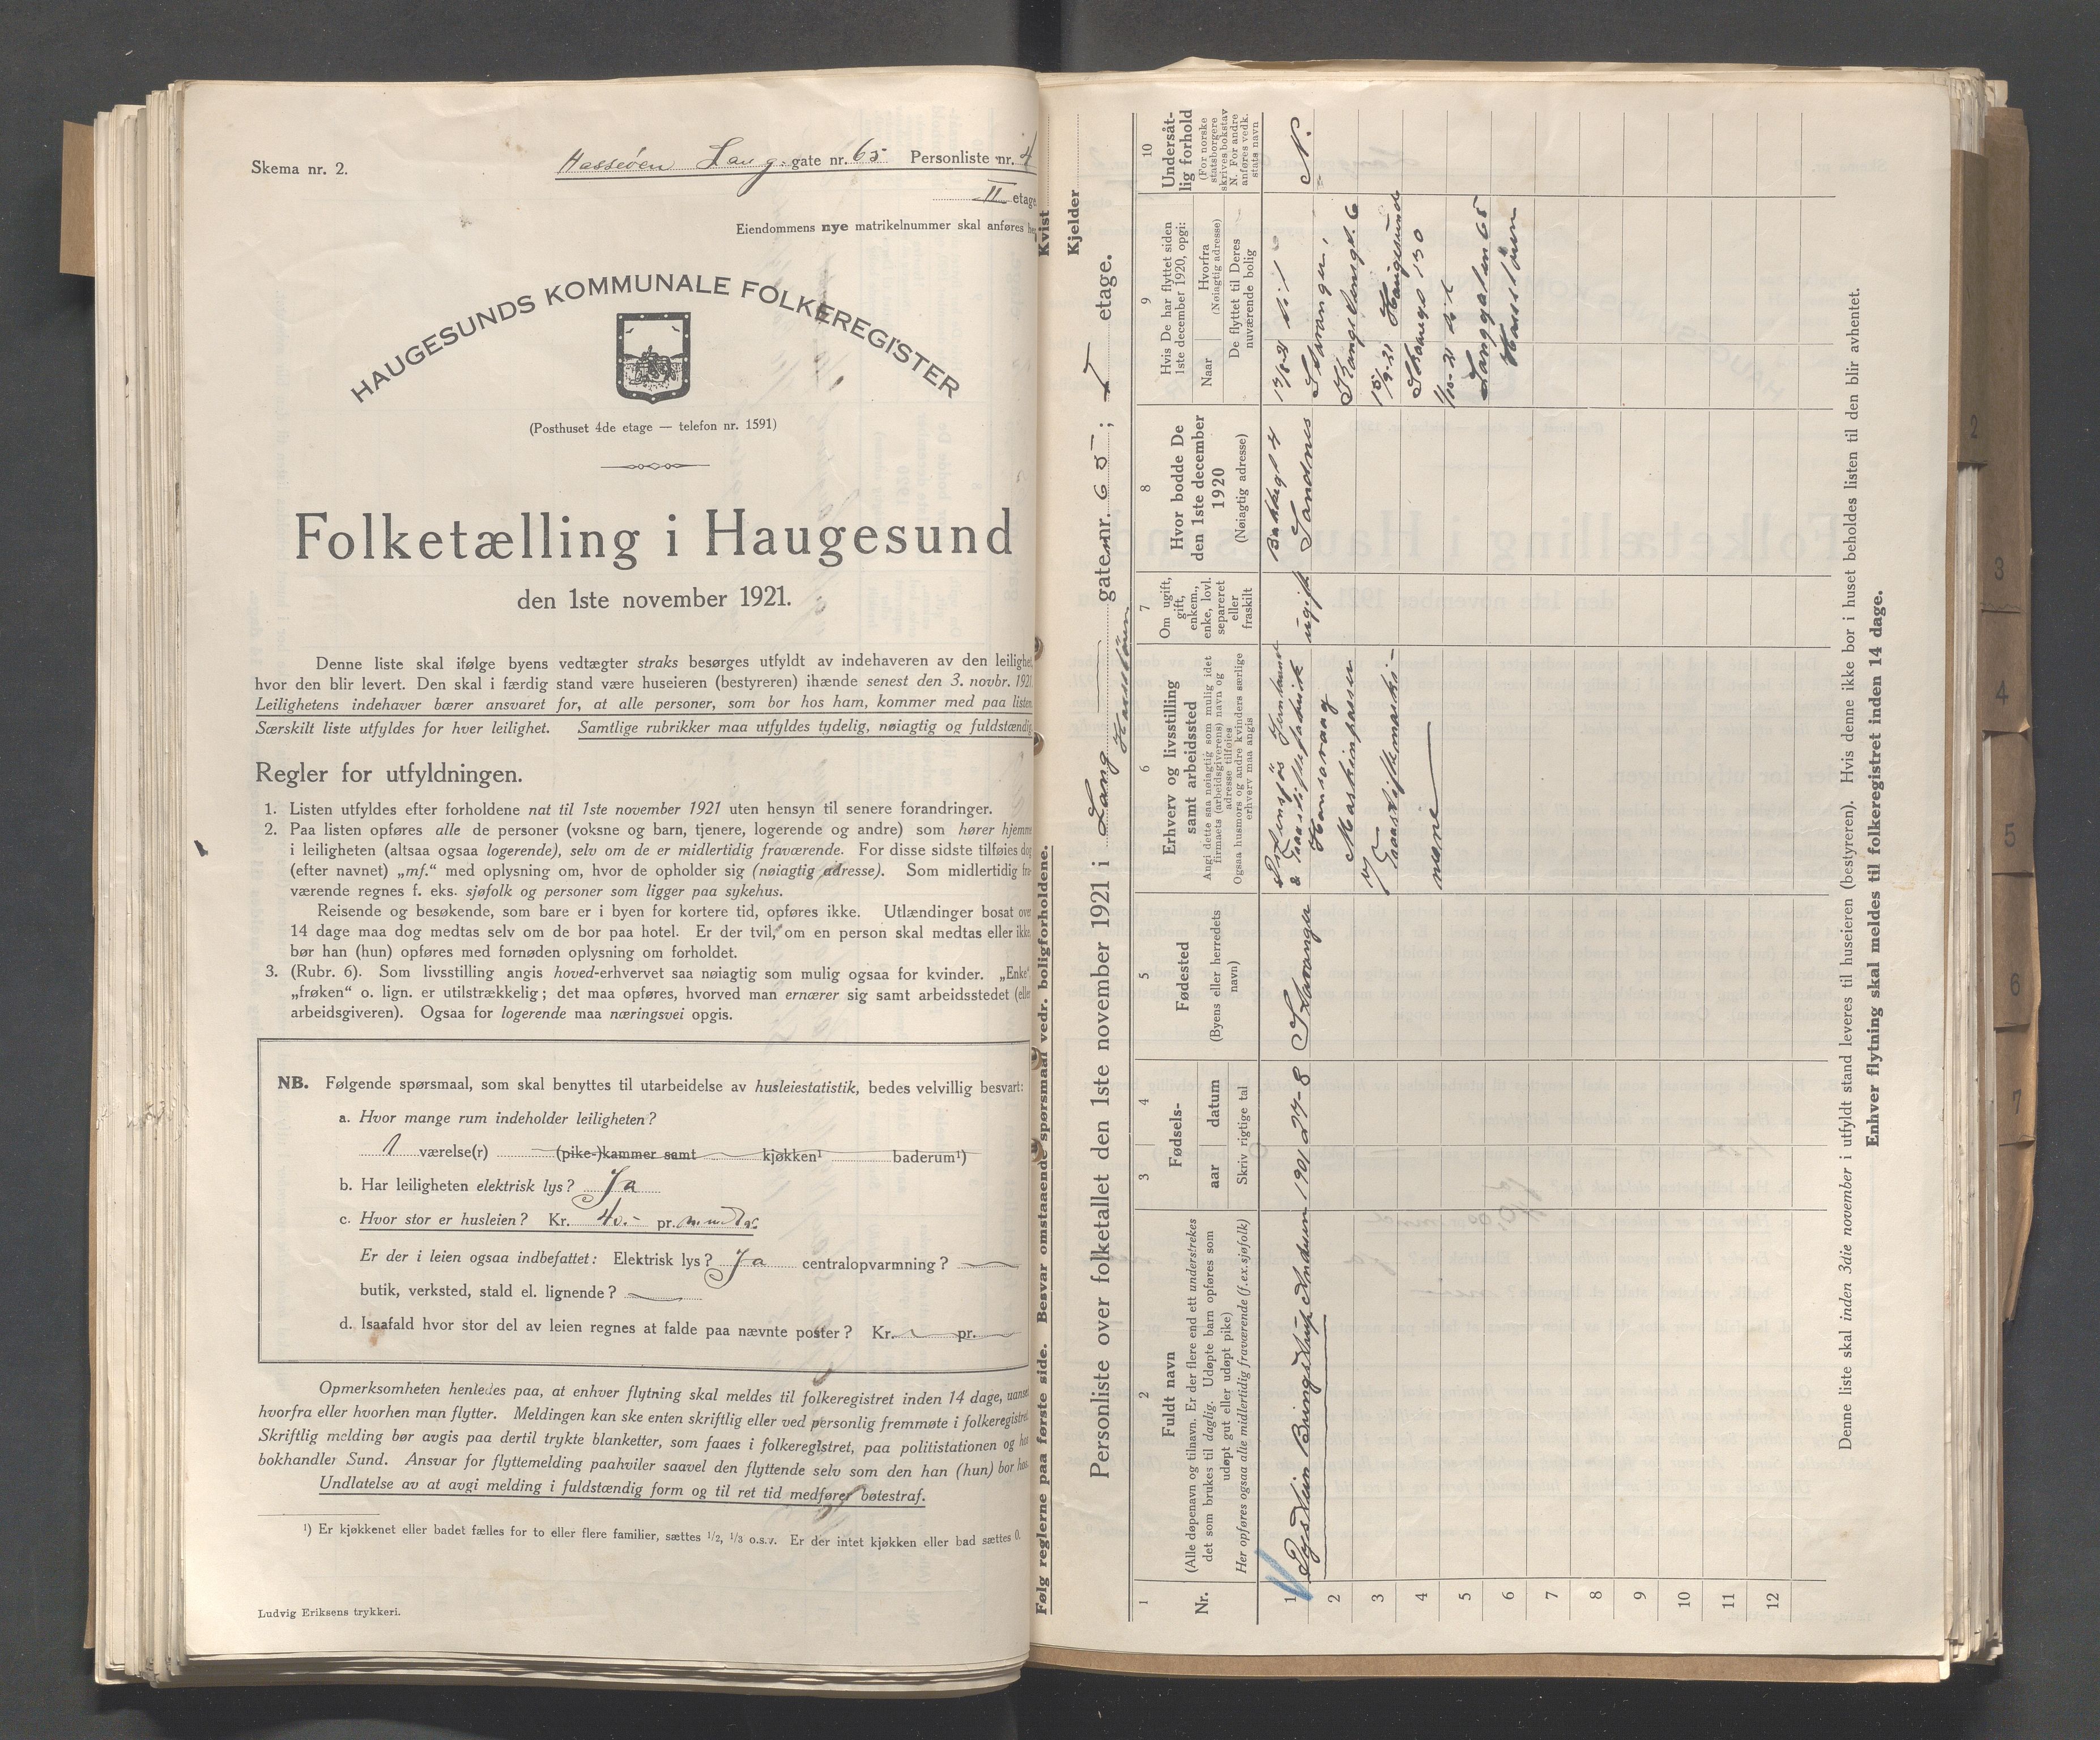 Skema nr. 2.
Hasseöen Lang. gate nr. 65 Personliste nr. 4
II etage
Eiendommens nye matrikelnummer skal anføres her
HAUGESUNDS KOMMUNALE FOLKEREGISTER
(Posthuset 4de etage — telefon nr. 1591)
Folketælling i Haugesund
den 1ste november 1921.
Denne liste skal ifølge byens vedtægter straks besørges utfyldt av indehaveren av den leilighet,
hvor den blir levert. Den skal i færdig stand være huseieren (bestyreren) ihænde senest den 3. novbr. 1921
Leilighetens indehaver bærer ansvaret for, at alle personer, som bor hos ham, kommer med paa listen
Særskilt liste utfyldes for hver leilighet. Samtlige rubrikker maa utfyldes tydelig, nøiagtig og fuldstændig
Regler for utfyldningen.
1. Listen utfyldes efter forholdene nat til 1ste november 1921 uten hensyn til senere forandringer.
2. Paa listen opføres alle de personer (voksne og barn, tjenere, logerende og andre) som hører hjemme
i leiligheten (altsaa ogsaa logerende), selv om de er midlertidig fraværende. For disse sidste tilføies dog
(efter navnet) „mf.“ med oplysning om, hvor de opholder sig (nøiagtig adresse). Som midlertidig fra-
værende regnes f. eks. sjøfolk og personer som ligger paa sykehus.
Reisende og besøkende, som bare er i byen for kortere tid, opføres ikke. Utlændinger bosat over
14 dage maa dog medtas selv om de bor paa hotel. Er der tvil, om en person skal medtas eller ikke,
bør han (hun) opføres med fornøden oplysning om forholdet.
3. (Rubr. 6). Som livsstilling angis hoved-erhvervet saa nøiagtig som mulig ogsaa for kvinder. „Enke“,
„frøken“ o. lign. er utilstrækkelig; det maa opføres, hvorved man ernærer sig samt arbeidsstedet (eller
arbeidsgiveren). Ogsaa for logerende maa næringsvei opgis.
NB. Følgende spørsmaal, som skal benyttes til utarbeidelse av husleiestatistik, bedes velvillig besvart:
a. Hvor mange rum indeholder leiligheten?
1 værelse(r) (pike-)kammer samt kjøkken¹ baderum¹)
b. Har leiligheten elektrisk lys? Ja
c. Hvor stor er husleien? Kr. 40.- pr.
Er der i leien ogsaa indbefattet: Elektrisk lys? Ja centralopvarmning? —
butik, verksted, stald el. lignende? —
d. Isaafald hvor stor del av leien regnes at falde paa nævnte poster? Kr. — pr. —
Opmerksomheten henledes paa, at enhver flytning skal meldes til folkeregistret inden 14 dage, uanset
hvorfra eller hvorhen man flytter. Meldingen kan ske enten skriftlig eller ved personlig fremmøte i folkeregistret
Skriftlig melding bør avgis paa dertil trykte blanketter, som faaes i folkeregistret, paa politistationen og hos
bokhandler Sund. Ansvar for flyttemelding paahviler saavel den flyttende selv som den han (hun) bor hos.
Undlatelse av at avgi melding i fuldstændig form og til ret tid medfører bøtestraf.
¹) Er kjøkkenet eller badet fælles for to eller flere familier, sættes 1/2, 1/3 o.s.v. Er der intet kjøkken eller bad sættes 0.
Ludvig Eriksens trykkeri.
Følg reglerne paa første side. Besvar omstaaende spørsmaal vedr. boligforholdene.
Kvist
Kjelder
Personliste over folketallet den 1ste november 1921 i Lang gate nr. 65; I etage.
Hasselöen
1 2 3 4 5 6 7 8 9 10
Nr.
Fuldt navn
(Alle døpenavn og tilnavn. Er der flere end ett understrekes
det som brukes til daglig. Udøpte barn opføres som
udøpt gut eller udøpt pike)
Her opføres ogsaa alle midlertidig fraværende (f. ex. sjøfolk)
Fødsels-
aar datum
Skriv rigtige tal
Fødested
(Byens eller herredets
navn)
Erhverv og livsstilling
samt arbeidssted
Angi dette saa nøiagtig som mulig idet
firmaets (arbeidsgiverens) navn og
adresse tilføies
Ogsaa husmors og andre kvinders særlige
erhverv maa angis
Om ugift,
gift,
enkem.,
enke, lovl.
separeret
eller
fraskilt
Hvor bodde De
den 1ste december
1920
(Nøiagtig adresse)
Hvis De har flyttet siden
1ste december 1920, opgi:
Naar
Hvorfra
(Nøiagtig adresse)
De flyttet til Deres
nuværende bolig
Undersåt-
lig forhold
(For norske
statsborgere
skrives bokstav
N. For andre
anføres vedk.
stats navn
1 Øystein Bringedstrup Andersen 1901 27-8 Stavanger
Hermetikfabrik
Hansavaag
Maskinpasser
ugift
Bakkegt 4
Sandnes
til
Stavanger,
15/9-21 Haugesund
Skaaregt 130
1/10-21 til
Langgaten 65
Hasselöen
N.
2
3
4
5
6
7
8
9
10
11
12
Denne liste skal inden 3die november i utfyldt stand leveres til huseieren (bestyreren). Hvis denne ikke bor i huset beholdes listen til den blir avhentet.
Enhver flytning skal meldes til folkeregistret inden 14 dage.
2
3
4
5
6
7